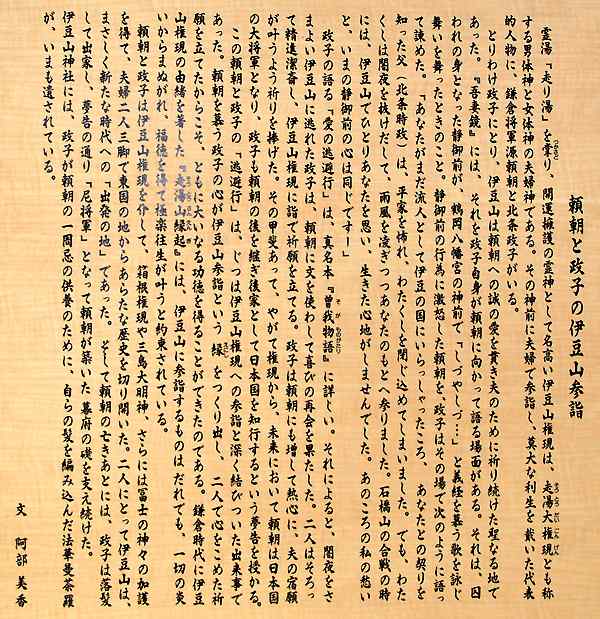 頼朝と政子の伊豆山参詣
霊湯「走り湯」を掌り、開運擁護の霊神として名高い伊豆山権現は、走湯大権現とも称
する男体神と女体神の夫婦神である。その神前に夫婦で参詣し、莫大な利生を戴いた代表
的人物に、鎌倉将軍源頼朝と北条政子がいる。
とりわけ政子にとり、伊豆山は頼朝への誠の愛を貫き夫のために祈り続けた聖なる地で
あった。『吾妻鏡』には、それを政子自身が頼朝に向かって語る場面がある。それは、囚
われの身となった静御前が、鶴岡八幡宮の神前で「しづやしづ…」と義経を慕う歌を詠じ
舞いを舞ったときのこと。静御前の行為に激怒した頼朝を、政子はその場で次のように語っ
て諫めた。「あなたがまだ流人として伊豆の国にいらっしゃったころ、あなたとの契りを
知った父（北条時政）は、平家を怖れ、わたくしを閉じ込めてしまいました。でも、わた
くしは闇夜を抜けだして、雨風を凌ぎつつあなたのもとへ参りました。石橋山の合戦の時
には、伊豆山でひとりあなたを思い、生きた心地がしませんでした。あのころの私の愁い
と、いまの静御前の心は同じです！」
政子の語る「愛の逃避行」は、真名本『曽我物語』に詳しい。それによると、闇夜をさ
まよい伊豆山に逃れた政子は、頼朝に文を使わして喜びの再会を果たした。二人はそろっ
て精進潔斎し、伊豆山権現に詣で祈願を立てる。政子は頼朝にも増して熱心に、夫の宿願
が叶うよう祈りを捧げた。その甲斐あって、やがて権現から、未来において頼朝は日本国
の大将軍となり、政子も頼朝の後を継ぎ後家として日本国を知行するという夢告を授かる。
この頼朝と政子の「逃避行」は、じつは伊豆山権現への参詣と深く結びついた出来事で
あった。頼朝を慕う政子の心が伊豆山参詣という縁をつくり出し、二人で心をこめた祈
願を立てたからこそ、ともに大いなる功徳を得ることができたのである。鎌倉時代に伊豆
山権現の由緒を著した『走湯山縁起』には、伊豆山に参詣するものはだれでも、一切の災
いからまぬがれ、福徳を得て極楽往生が叶うと約束されている。
頼朝と政子は伊豆山権現を介して、箱根権現や三島大明神、さらには冨士の神々の加護
を得て、夫婦二人三脚で東国の地からあらたな歴史を切り開いた。二人にとって伊豆山は、
まさしく新たな時代への「出発の地」であった。そして頼朝の亡きあとには、政子は落髪
して出家し、夢告の通り「尼将軍」となって頼朝が築いた幕府の礎を支え続けた。
伊豆山神社には、政子が頼朝の一周忌の供養のために、自らの髪を編み込んだ法華曼荼羅
が、いまも遺されている。
文　阿部　美香